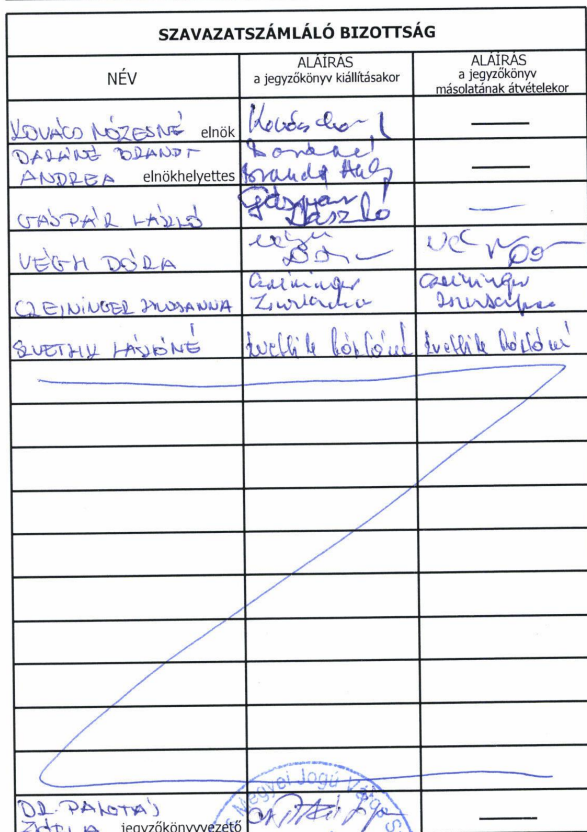 SZAVAZATSZÁMLÁLÓ BIZOTTSÁG
NÉV
ALÁÍRÁS
a jegyzőkönyv kiállításakor
ALÁÍRÁS
a jegyzőkönyv
másolatának átvételekor
KOVÁCS MÓZESNÉ elnök
DARÁNÉ BRANDT
ANDREA elnökhelyettes
Brandt
GÁSPÁR LÁSZLÓ
Gáspár
László
VÉGH DÓRA
CZEININGER ZSUZSANNA
Czeininger
Czeininger
SZVETLIK LÁSZLÓNÉ
Szvetlik Lászlóné
Szvetlik Lászlóné
DR. PALOTAI
jegyzőkönyvvezető
Megyei Jogú Város